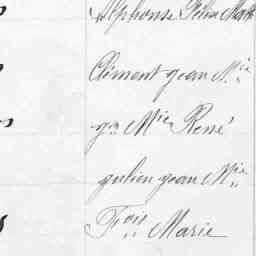 Alphonse Félix Math
Clément jean Mie
Jn Mie René
julien jean Mie
Fois Marie